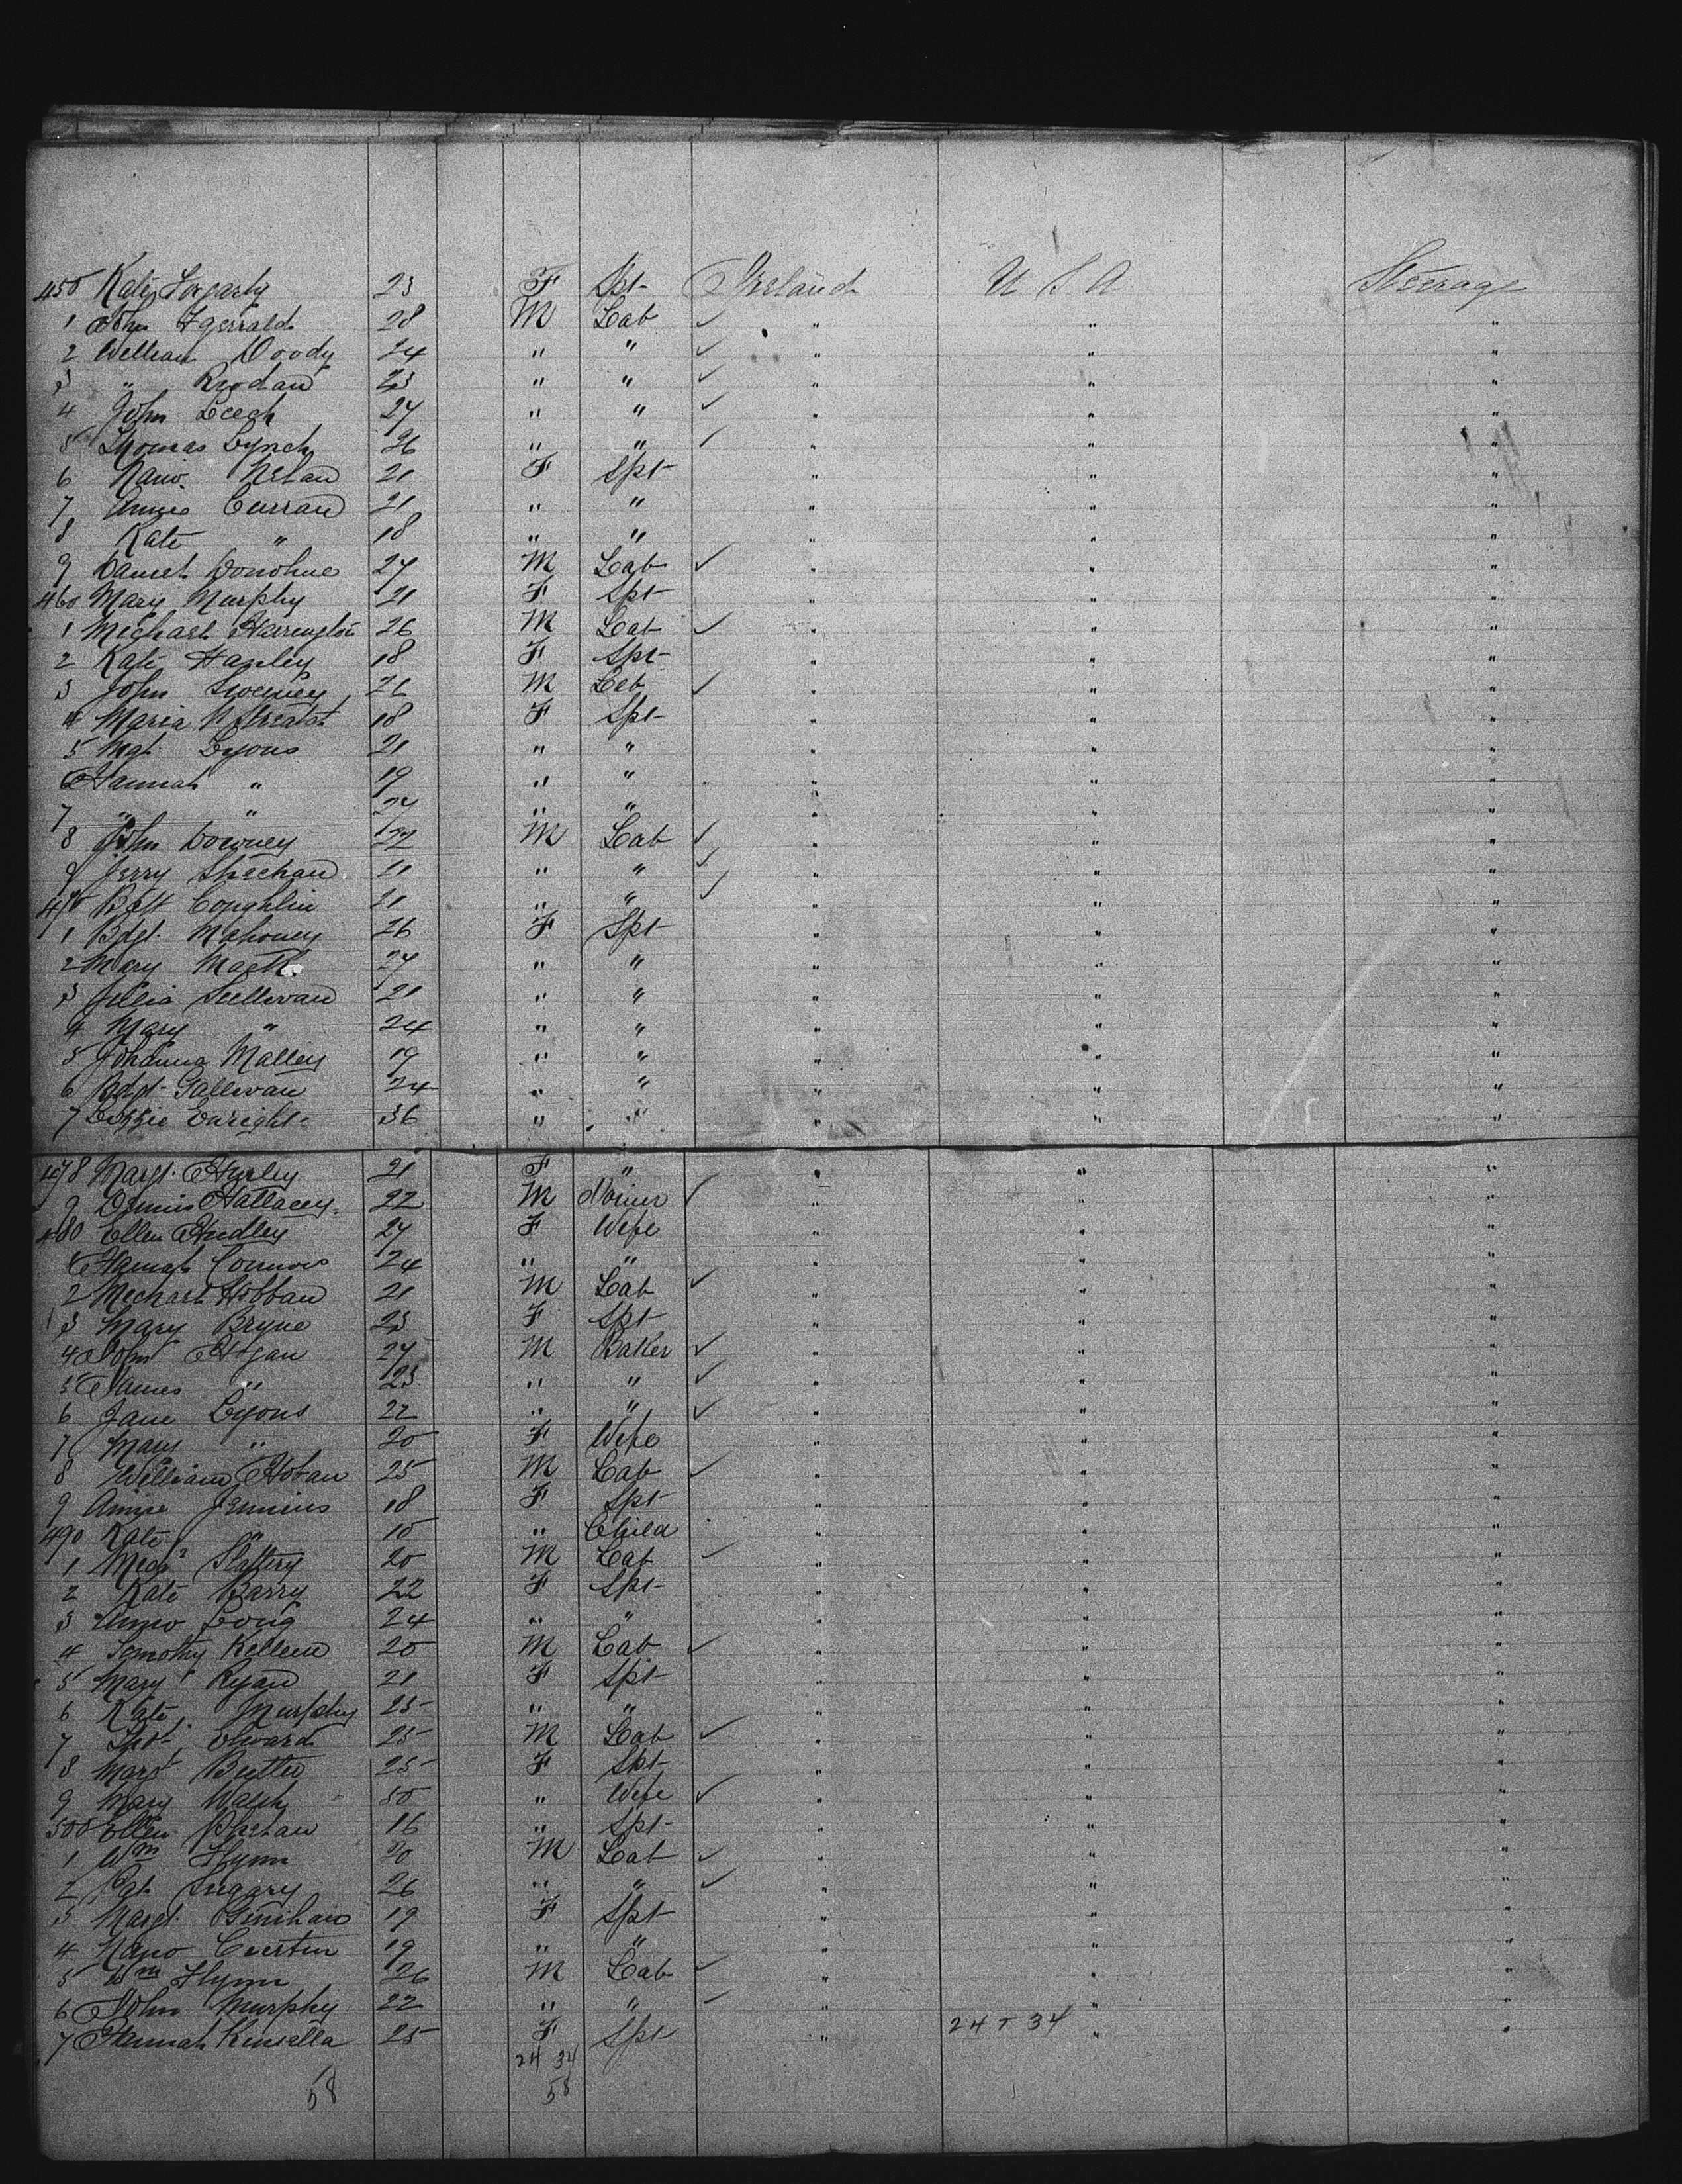 450 Kate Fogarty 23 F Spt Ireland U S A Steerage
1 John Fgerrald 28 M Lab ✓ " " "
2 William Doody 24 " " ✓ " " "
3 " Riordan 23 " " ✓ " " "
4 John Leech 27 " " ✓ " " "
5 Thomas Lynch 26 " " ✓ " " "
6 21 F Spt " " "
7 Annie Curran 21 " " " " "
8 Kate " 18 " " " " "
9 Daniel Donohue 27 M Lab ✓ " " "
460 Mary Murphy 21 F Spt " " "
1 Michael Harrington 26 M Lab ✓ " " "
2 Kate Hanley 18 F Spt " " "
3 John Sweeney 26 M Lab ✓ " " "
4 Maria 18 F Spt " " "
5 Mgt Lyons 21 " " " " "
6 Hannah " 19 " " " " "
7 " " 24 " " " " "
8 John Downey 22 M Lab ✓ " " "
9 Jerry Sheehan 21 " " ✓ " " "
470 Batt Coughlin 21 " " ✓ " " "
1 Bdgt. Mahoney 26 F Spt " " "
2 Mary 27 " " " " "
3 Julia Sullivan 21 " " " " "
4 Mary " 24 " " " " "
5 Johanna Malley 19 " " " " "
6 Bdgt Gallivan 24 " " " " "
7 Lizzie Enright 36 " " " " "
478 Margt. Hurley 21 F " " " "
9 Dennis Hallacey 22 M ✓ " " "
480 Ellen Hudley 27 F Wife " " "
1 Hannah Connors 24 " " " " "
2 Michael Hobban 21 M Lab ✓ " " "
3 Mary Bryne 23 F Spt " " "
4 John Hogan 27 M Baker ✓ " " "
5 James " 23 " " ✓ " " "
6 Jane Lyons 22 " " ✓ " " "
7 Mary " 20 F Wife " " "
8 William Hoban 25 M Lab ✓ " " "
9 Annie Jennins 18 F Spt " " "
490 Kate " 10 " Child " " "
1 Slattery 20 M Lab ✓ " " "
2 Kate Barry 22 F Spt " " "
3 Long 24 " " " " "
4 Timothy Kelleu 20 M Lab ✓ " " "
5 Mary Ryan 21 F Spt " " "
6 Kate Murphy 25 " " " " "
7 Edward 25 M Lab ✓ " " "
8 Margt Butler 25 F Spt " " "
9 Mary Walsh 50 " Wife ✓ " " "
500 Ellen Phelan 16 " Spt " " "
1 Wm Flynn 20 M Lab ✓ " " "
2 Pat 26 " " ✓ " " "
3 Margt. 19 F Spt " " "
4 19 " " " " "
5 Wm Flynn 26 M Lab ✓ " " "
6 John Murphy 22 " " ✓ " " "
7 Hannah Kinsella 25 F Spt " 24 + 34 " "
24 34
58 58